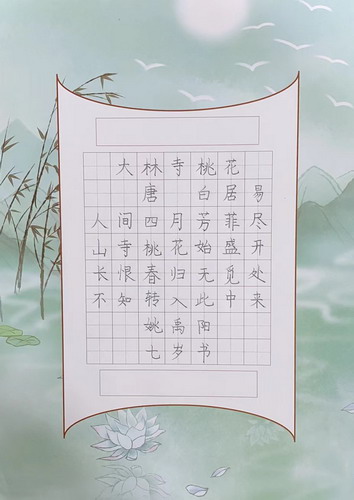 大林寺桃花
唐 白居易
人间四月芳菲尽
山寺桃花始盛开
长恨春归无觅处
不知转入此中来
姚禹阳
七岁书